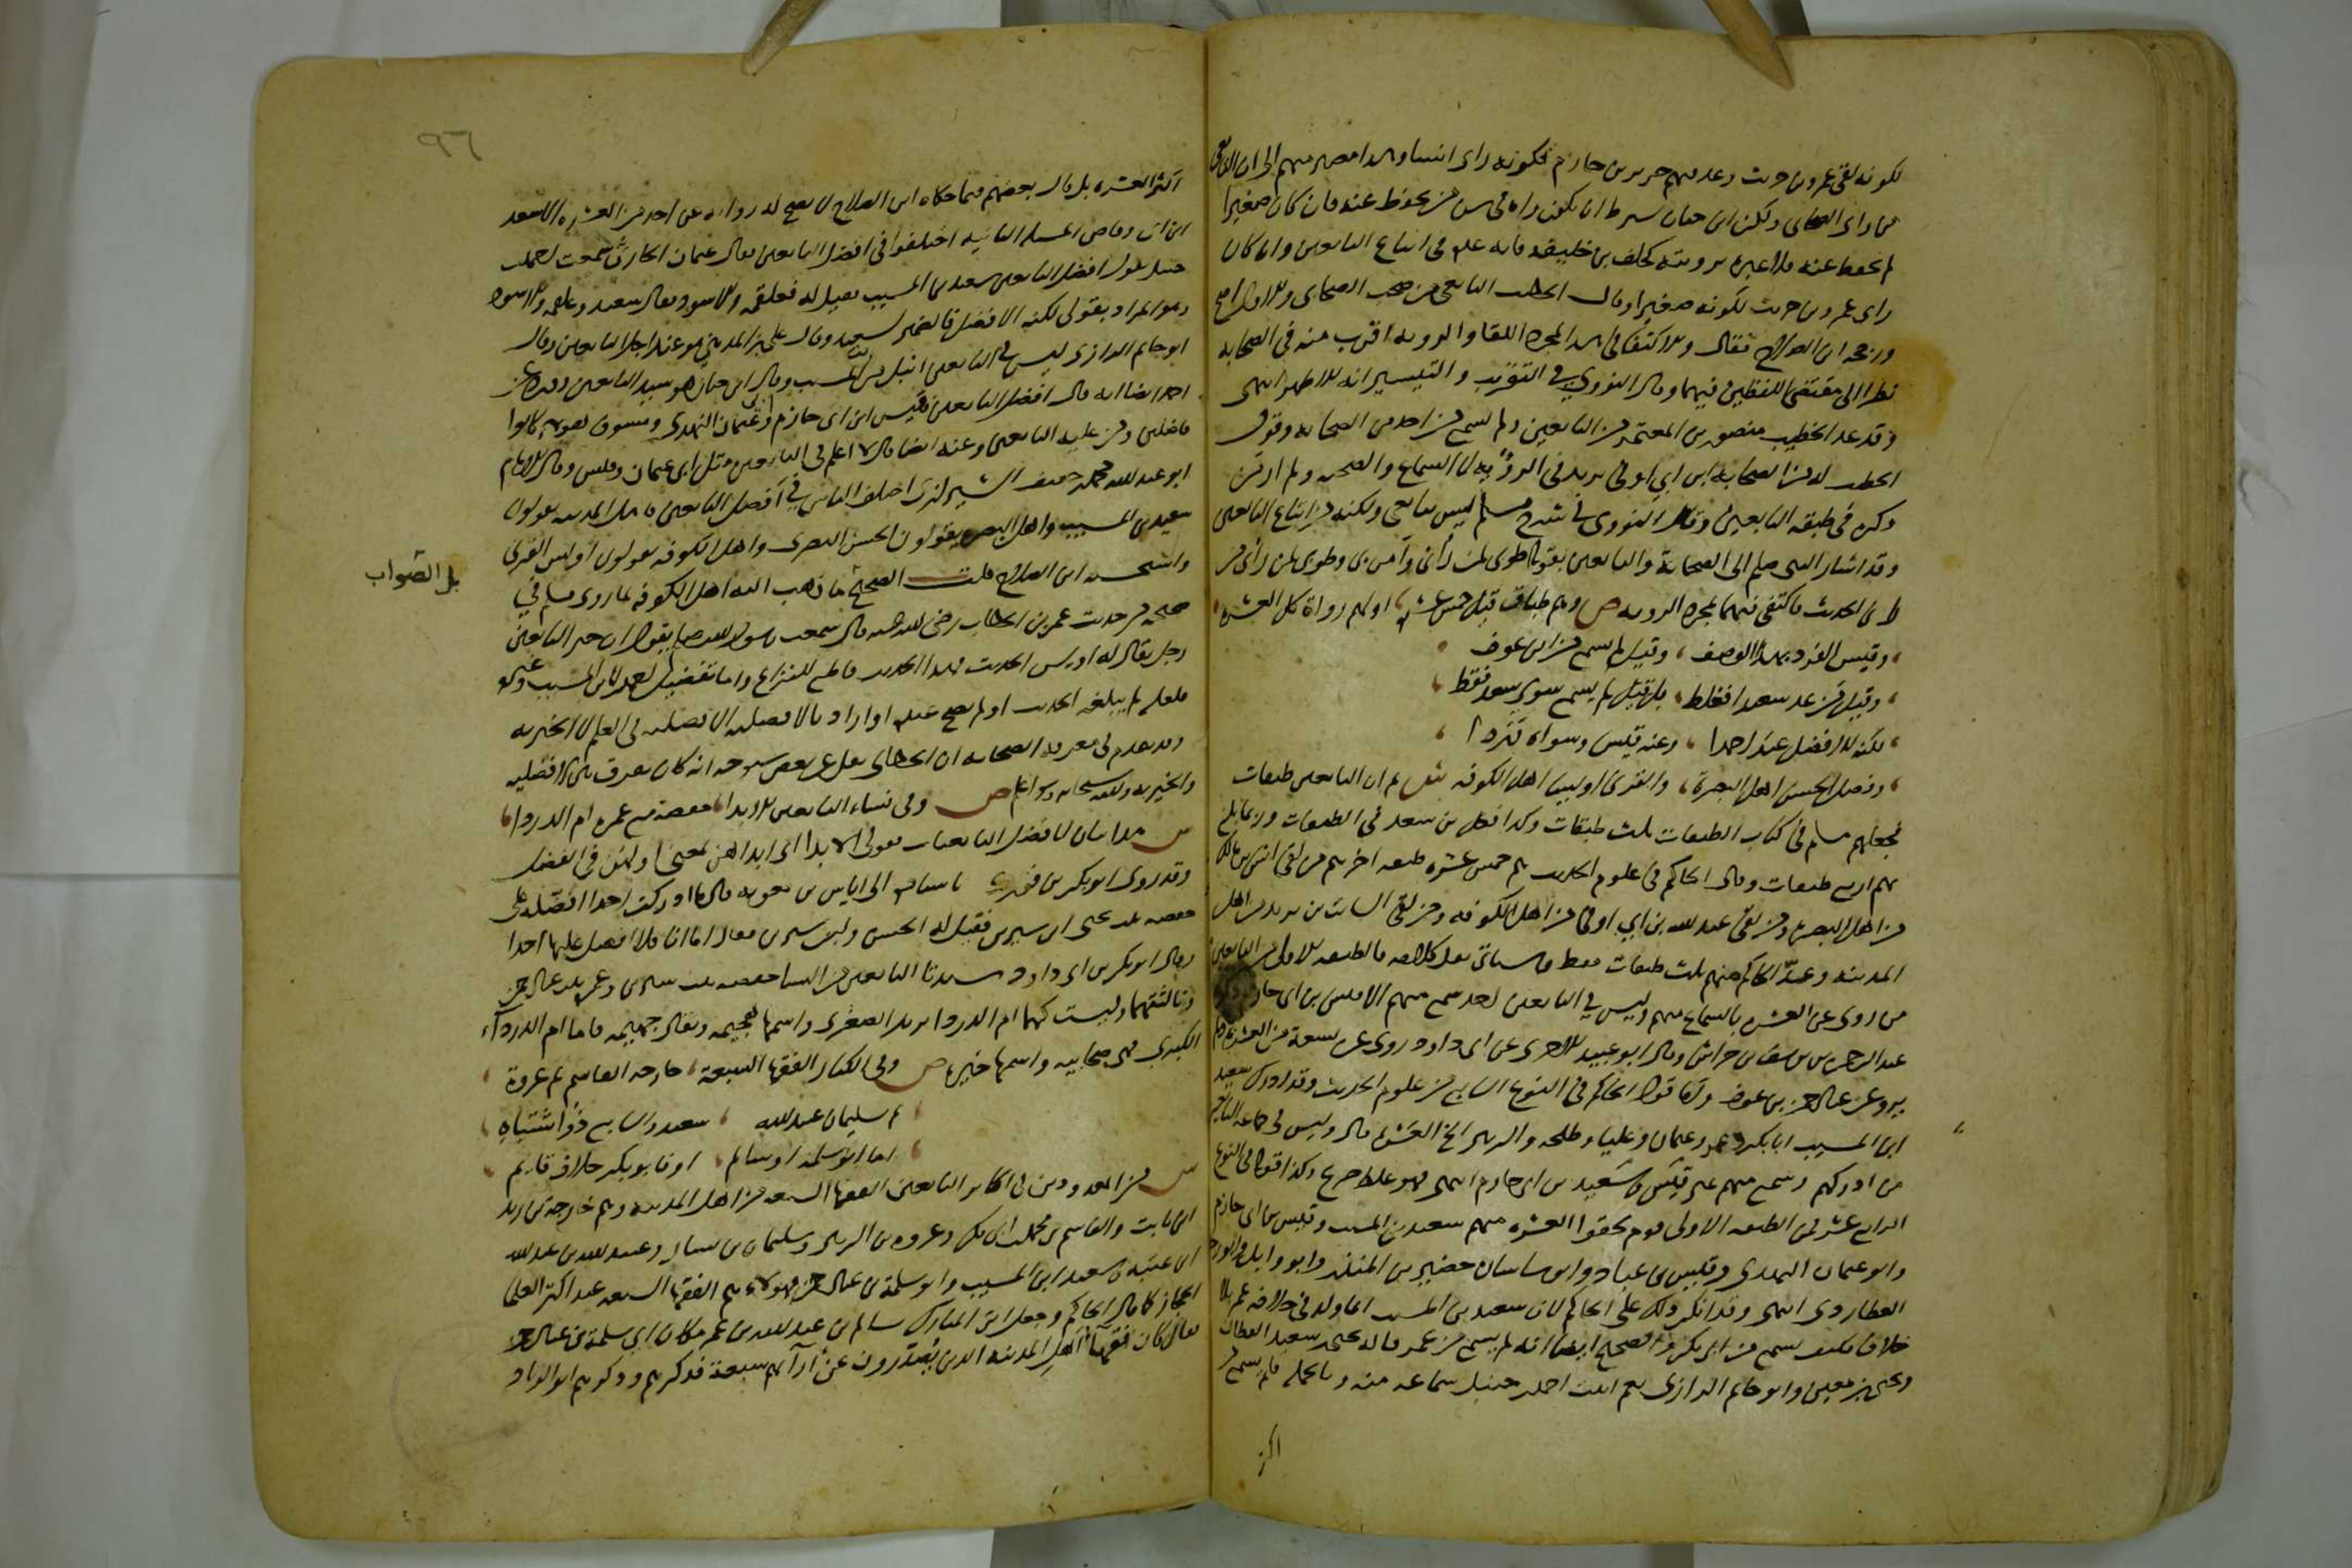 لكونه لقى عمرو بن حريث وعد منهم جرير بن حازم لكونه راى انسا وهذا مصير منهم الى ان التابعى
من راى الصحابى ولكن ابن حبان يشترط ان يكون راه فى سن من يحفظ عنه فان كان صغيرا
لم يحفظ عنه فلا عبرة برويته كخلف بن خليفة فانه عده فى اتباع التابعين وان كان
راى عمرو بن حريث لكونه صغيرا وقال الخطيب التابعى من صحب الصحابى والاول اصح
ورجحه ابن الصلاح فقال والاكتفا فى هذا بمجرد اللقا والروية اقرب منه فى الصحابه
نظرا الى مقتضى اللفظين فيهما وقال النووى فى التقريب والتيسير انه الاظهر انتهى
وقد عد الخطيب منصور بن المعتمر من التابعين ولم يسمع من احد من الصحابه وقول
الخطيب له من الصحابه ابن ابى اوفى يريد فى الروية لا السماع والصحبه ولم ار من
ذكره فى طبقه التابعين وقال النووى فى شرح مسلم ليس بتابعى ولكنه من اتباع التابعين
وقد اشار النبى صلعم الى الصحابة والتابعين بقوله طوبى لمن رآنى وآمن بى وطوبى لمن راى من
رانى الحديث فاكتفى فيهما بمجرد الرويه ص وهم طباق قيل خمس عشره اولهم رواة كل العشره
وقيس الفرد بهذا الوصف ، وقيل لم يسمع من ابن عوف
وقيل من عد سعيدا فغلط ، بل قيل لم يسمع سوى سعد فقط
لكنه الافضل عند احمدا ، وعنه قيس وسواه وردا
وفضل الحسن اهل البصرة ، والقرنى اويسا اهل الكوفه ش ثم ان التابعين طبقات
فجعلهم مسلم فى كتاب الطبقات ثلث طبقات وكذا فعل بن سعد فى الطبقات وربما بلغ
بهم اربع طبقات وقال الحاكم فى علوم الحديث هم خمس عشره طبقه اخرهم من لقى انس بن مالك
من اهل البصره ومن لقى عبد الله بن ابى اوفى من اهل الكوفه ومن لقى السائب بن يزيد من اهل
المدينه وعد الحاكم منهم ثلث طبقات فقط وسياتى نقل كلامه فالطبقه الاولى من التابعين
من روى عن العشره بالسماع منهم وليس فى التابعين احد سمع منهم الا قيس بن ابى حازم
عبد الرحمن بن يوسف بن خراش وقال ابو عبيد الاجرى عن ابى داود روى عن تسعة من العشره ولم
يرو عن عبد الرحمن بن عوف واما قول الحاكم فى النوع السابع من علوم الحديث وقد ادرك سعيد
ابن المسيب ابا بكر وعمر وعثمان وعليا وطلحه والزبير الى اخر العشره قال وليس فى جماعه التابعين
من ادركهم وسمع منهم غير قيس وسعيد بن ابى حازم انتهى فهو غلط صريح وكذا قوله فى النوع
الرابع عشر فمن الطبقه الاولى قوم لحقوا العشره منهم سعيد بن المسيب وقيس بن ابى حازم
وابو عثمان النهدى وقيس بن عباد وابو ساسان حضين بن المنذر وابو وايل وابو رجا
العطاردى انتهى وقد انكر ذلك على الحاكم لان سعيد بن المسيب انما ولد فى خلافه عمر بلا
خلاف فكيف يسمع من ابى بكر والصحيح ايضا انه لم يسمع من عمر قاله يحيى بن سعيد القطان
ويحيى بن معين وابو حاتم الرازى نعم اثبت احمد بن حنبل سماعه منه وبالجمله فلم يسمع من
اكثر
٩٦
اكثر العشره بل قال بعضهم فيما حكاه ابن الصلاح لا يصح له روايه عن احد من العشره الا سعد
ابن ابى وقاص المسله الثانيه اختلفوا فى افضل التابعين فقال عثمان الحارثى سمعت احمد بن
حنبل يقول افضل التابعين سعيد بن المسيب فقيل له فعلقمه والاسود فقال سعيد وعلقمه والاسود
وهو المراد بقولى لكنه الافضل فالضمير لسعيد وقال على بن المدينى هو عندى اجل التابعين وقال
ابو حاتم الرازى ليس فى التابعين انبل من ابن المسيب وقال ابن حبان هو سيد التابعين وورد عن
احمد ايضا انه قال افضل التابعين قيس ابن ابى حازم وابى عثمان النهدى ومسروق هولاء كانوا
فاضلين ومن عليه التابعين وعنه ايضا قال لا اعلم فى التابعين مثل ابى عثمان وقيس وقال الامام
ابو عبد الله محمد بن خفيف الشيرازى اختلف الناس فى افضل التابعين فاهل المدينه يقولون
سعيد بن المسيب واهل البصره يقولون الحسن البصرى واهل الكوفه يقولون اويس القرنى
واستحسنه ابن الصلاح قلت الصحيح ما ذهب اليه اهل الكوفه لما روى مسلم فى
بل الصواب
صحيحه من حديث عمر بن الخطاب رضى الله عنه قال سمعت رسول الله صلعم يقول ان خير التابعين
رجل يقال له اويس الحديث فهذا الحديث قاطع للنزاع واما تفضيل احمد لابن المسيب وغيره
فلعله لم يبلغه الحديث او لم يصح عنده او اراد بالافضليه الافضليه فى العلم لا الخيريه
وقد تقدم فى معرفه الصحابه ان الخطابى نقل عن بعض شيوخه انه كان يفرق بين الافضليه
والخيريه والله سبحانه وتعالى اعلم ص وفى نساء التابعين الابدا ، حفصة مع عمرة ام الدردا
ش هذا بيان لافضل التابعيات فقولى الابدا اى ابداهن بمعنى اولهن فى الفضل
وقد روى ابو بكر بن ابى داود باسناده الى اياس بن معويه قال ما ادركت احدا افضله على
حفصه بنت سيرين فقيل له الحسن وابن سيرين فقال اما انا فلا افضل عليها احدا
وقال ابو بكر بن ابى داود سيدتا التابعين من النسا حفصه بنت سيرين وعمره بنت عبد الرحمن
وثالثتهما وليست كهما ام الدردا يريد الصغرى واسمها هجيمه ويقال جهيمه فاما ام الدرداء
الكبرى فهى صحابيه واسمها خيره ص وفى الكبار الفقهاء السبعة ، خارجه القاسم ثم عروة
ثم سليمان عبيد الله ، سعيد والسابع ذو اشتباه
اما ابو سلمة او سالم ، او فابو بكر خلاف قائم
ش من المعدودين فى اكابر التابعين الفقها السبعه من اهل المدينه وهم خارجه بن زيد
ابن ثابت والقاسم بن محمد بن ابى بكر وعروه بن الزبير وسليمان بن يسار وعبيد الله بن عبد الله
ابن عتبه وسعيد ابن المسيب وابو سلمة بن عبد الرحمن فهولاء هم الفقها السبعه عند اكثر العلما
الحجاز كما قال الحاكم وجعل ابن المبارك سالم بن عبد الله بن عمر مكان ابى سلمة بن عبد الرحمن
فقال كان فقهاء اهل المدينه الذين يُصدرون عن آرائهم سبعة فذكرهم وذكرهم ابو الزناد